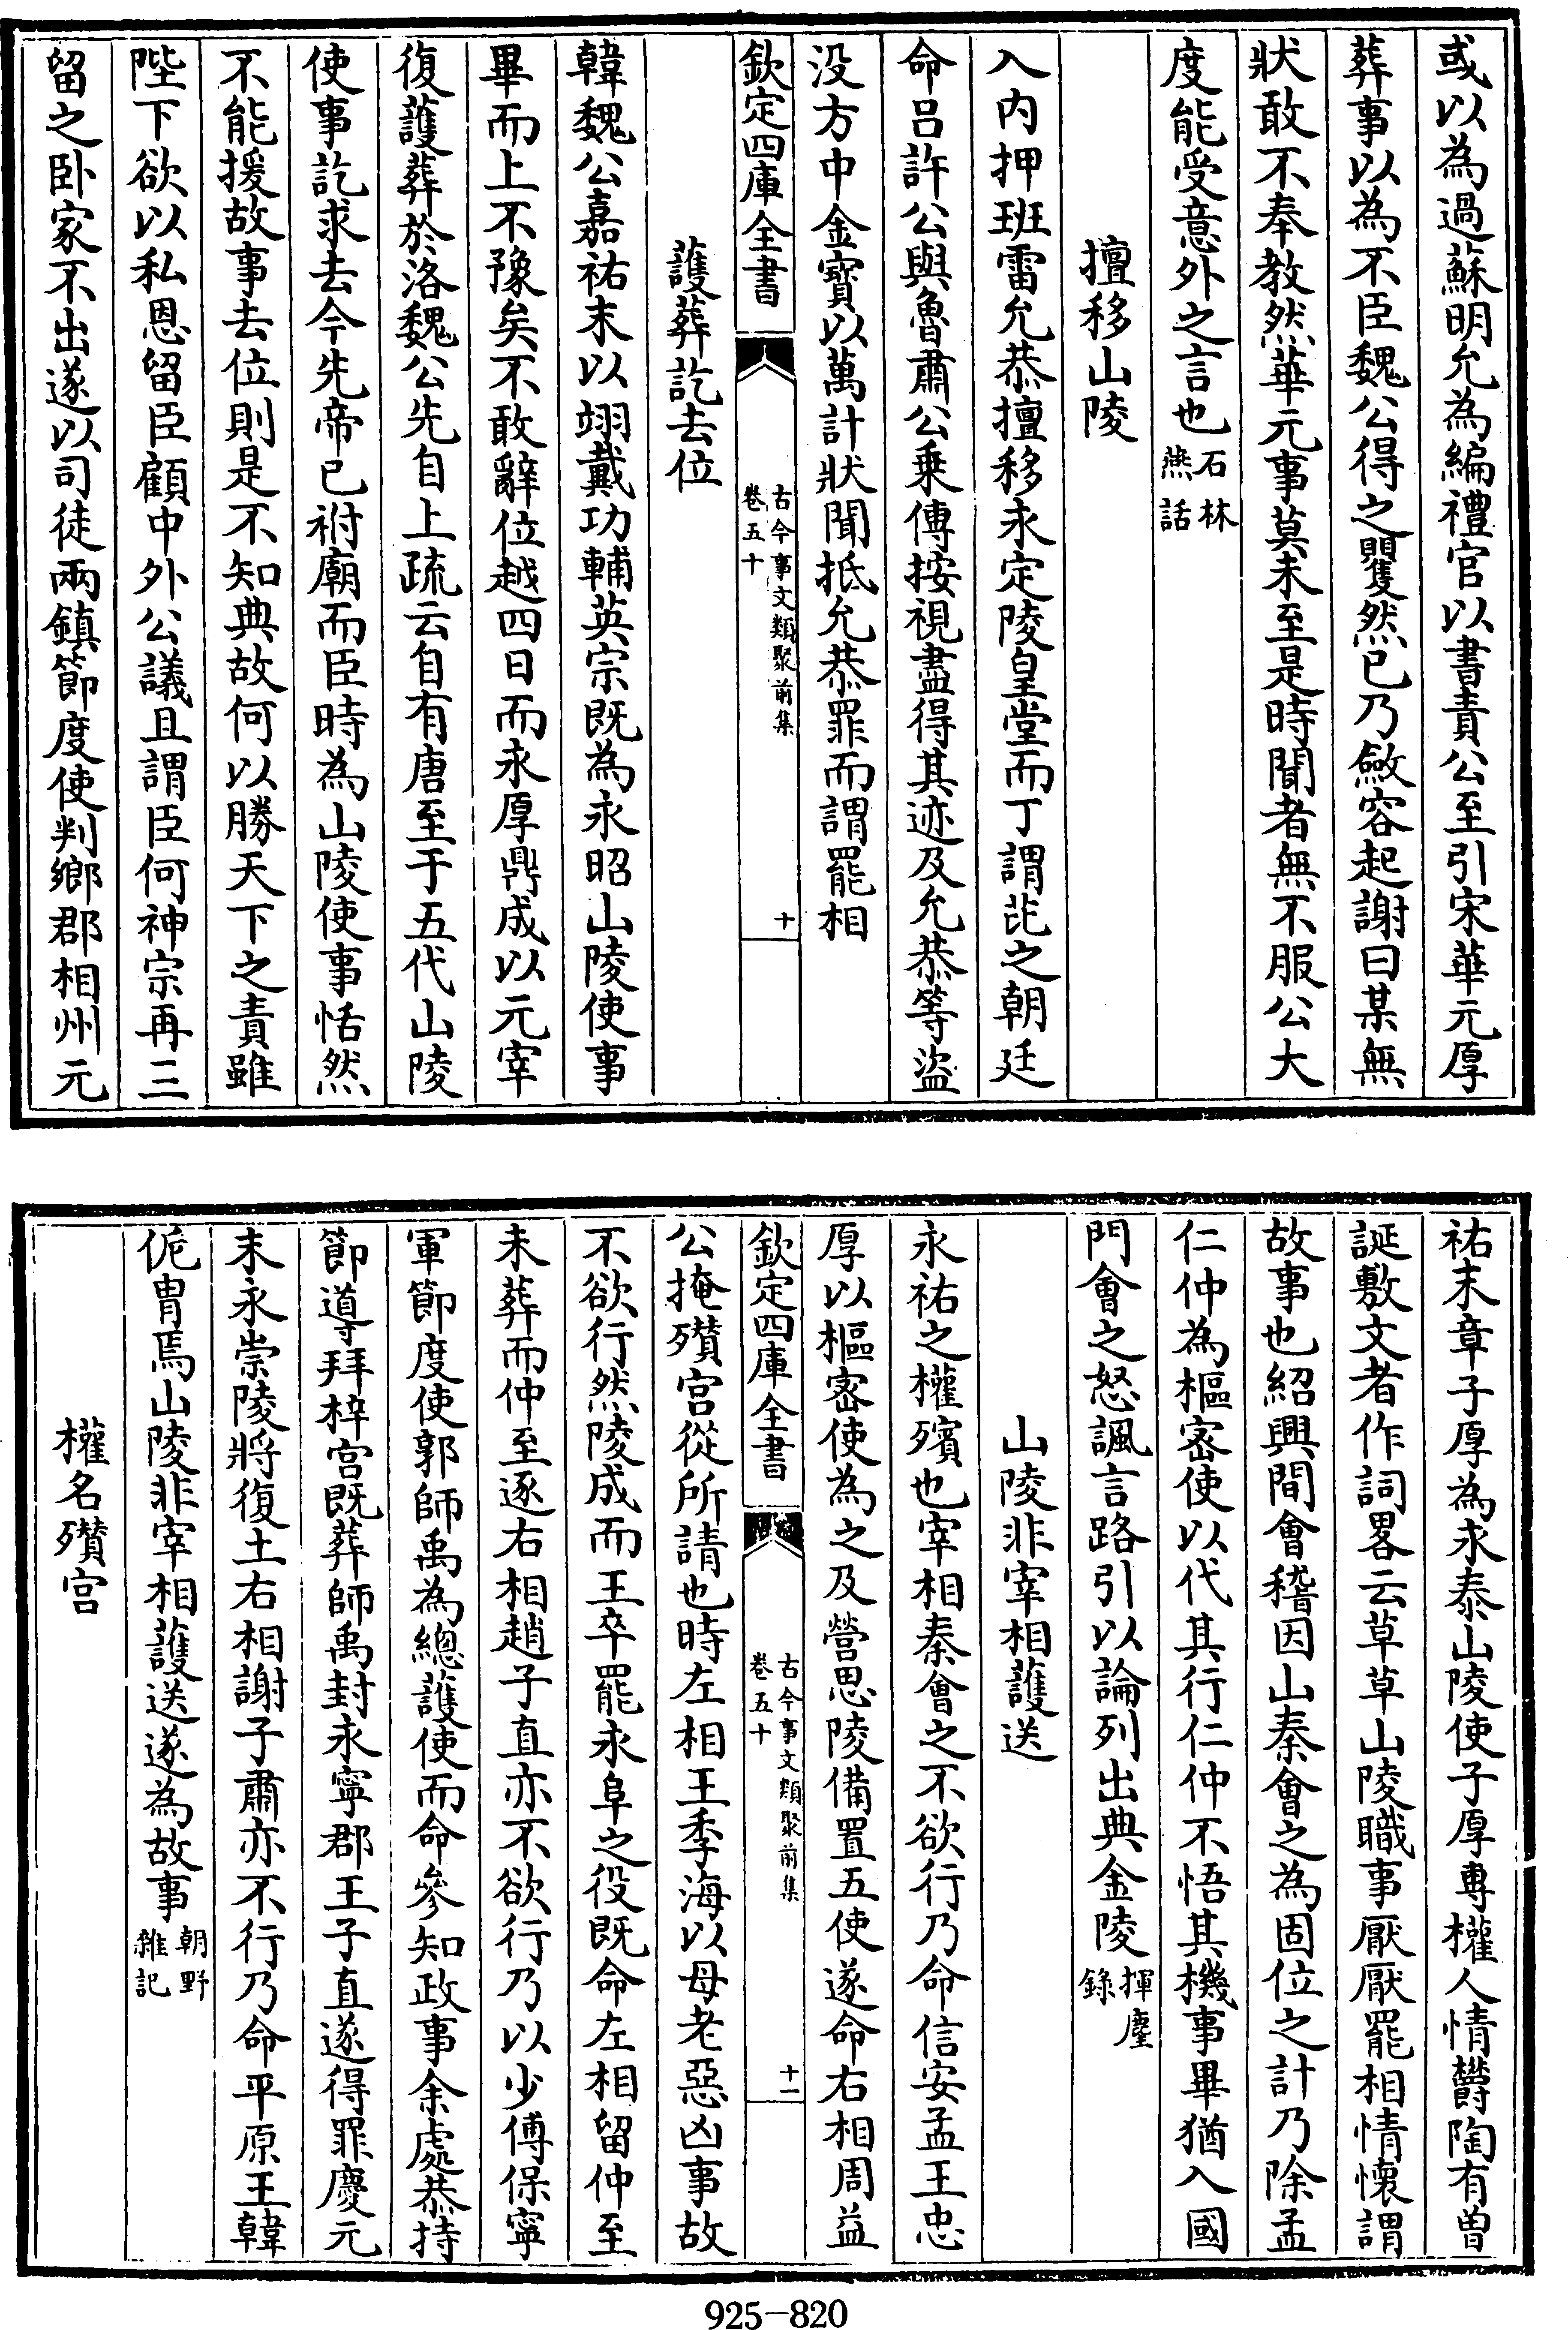 或以為過蘇明允為編禮官以書責公至引宋華元厚
葬事以為不臣魏公得之矍然已乃斂容起謝曰某無
狀敢不奉教然華元事莫未至是時聞者無不服公大
度能受意外之言也石林燕話
擅移山陵
入内押班雷允恭擅移永定陵皇堂而丁謂芘之朝廷
命吕許公與魯肅公乗傳按視盡得其迹及允恭等盗
没方中金寳以萬計狀聞抵允恭罪而謂罷相
欽定四庫全書
古今事文類聚前集
卷五十
十
護葬訖去位
韓魏公嘉祐末以翊戴功輔英宗既為永昭山陵使事
畢而上不豫矣不敢辭位越四日而永厚鼎成以元宰
復護葬於洛魏公先自上疏云自有唐至于五代山陵
使事訖求去今先帝已祔廟而臣時為山陵使事恬然
不能援故事去位則是不知典故何以勝天下之責雖
陛下欲以私恩留臣顧中外公議且謂臣何神宗再三
留之卧家不出遂以司徒兩鎮節度使判鄉郡相州元
祐末章子厚為永泰山陵使子厚專權人情欝陶有曽
誕敷文者作詞畧云草草山陵職事厭厭罷相情懷謂
故事也紹興間會稽因山秦會之為固位之計乃除孟
仁仲為樞密使以代其行仁仲不悟其機事畢猶入國
門會之怒諷言路引以論列出典金陵揮麈錄
山陵非宰相護送
永祐之權殯也宰相秦會之不欲行乃命信安孟王忠
厚以樞密使為之及營思陵備置五使遂命右相周益
欽定四庫全書
古今事文類聚前集
卷五十
十一
公掩殯宫從所請也時左相王季海以母老惡凶事故
不欲行然陵成而王卒罷永阜之役既命左相留仲至
未葬而仲至逐右相趙子直亦不欲行乃以少傅保寧
軍節度使郭師禹為總護使而命參知政事余處恭持
節導拜梓宫既葬師禹封永寧郡王子直遂得罪慶元
末永崇陵將復土右相謝子肅亦不行乃命平原王韓
侂胄焉山陵非宰相護送遂為故事朝野雜記
權名殯宫
925-820